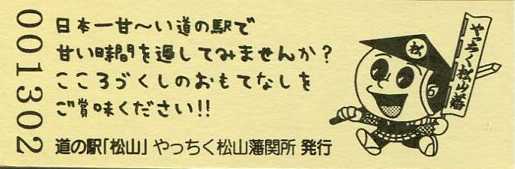 001302
日本一甘〜い道の駅で
甘い時間を過してみませんか?
こころづくしのおもてなしを
ご賞味ください!!
道の駅「松山」やっちく松山藩関所 発行
松
やっちく松山藩